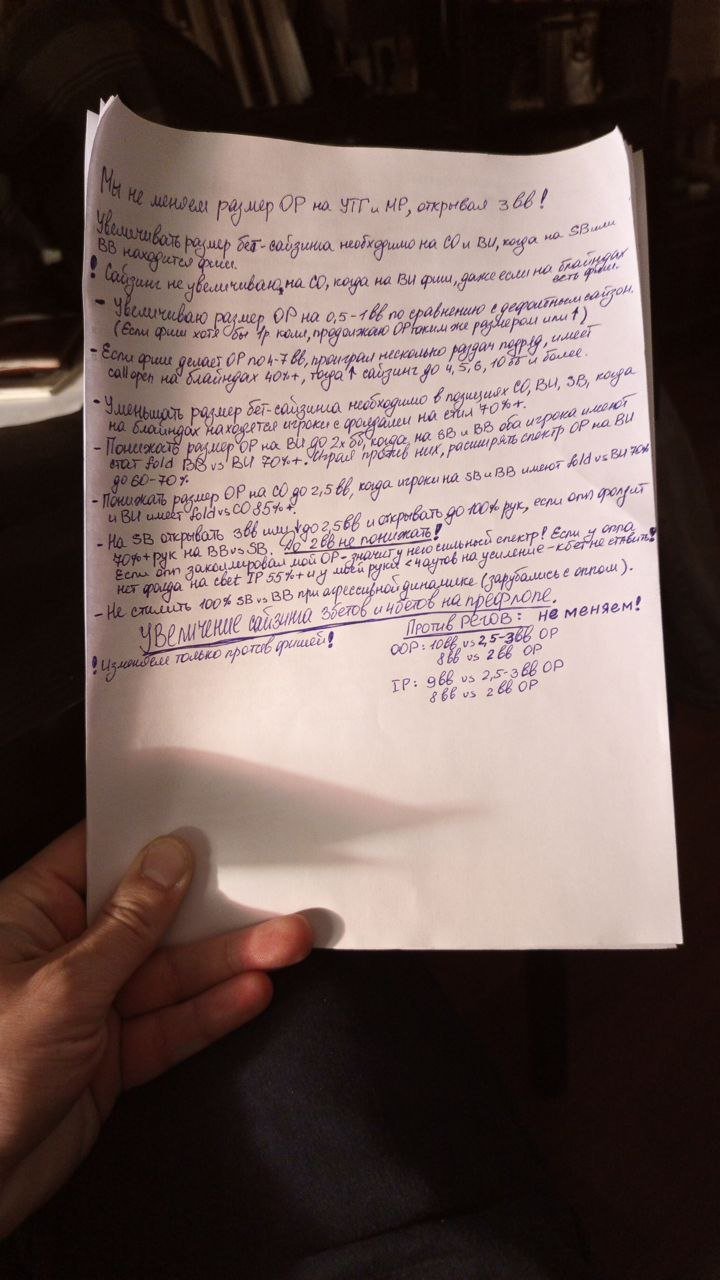 Мы не меняем размер ОР на УТГ и МР, открывая 3вв!
Увеличивать размер бет-сайзинга необходимо на СО и BU, когда на SB или
BB находится фиш.
! Сайзинг не увеличиваю, на СО, когда на BU фиш, даже если на блайндах
есть фиши.
- Увеличиваю размер ОР на 0,5-1вв по сравнению с дефолтным сайзом.
(Если фиш хотя бы 1р колл, продолжаю ОР таким же размером или ↑)
- Если фиш делает ОР по 4-7вв, проиграл несколько раздач подряд, имеет
call open на блайндах 40%+, тогда ↑ сайзинг до 4, 5, 6, 10 бб и более.
- Уменьшать размер бет-сайзинга необходимо в позициях СО, BU, SB, когда
на блайндах находятся игроки с фолдами на стил 70%+.
- Понижать размер ОР на BU до 2х бб, когда, на SB и BB оба игрока имеют
стат fold BB vs BU 70%+. Играя против них, расширять спектр ОР на BU
до 60-70%
- Понижать размер ОР на СО до 2,5вв, когда игроки на SB и BB имеют fold vs BU 70%
и BU имеет fold vs CO 85%+.
- На SB открывать 3вв или ↓ до 2,5вв и открывать до 100% рук, если опп фолдит
70%+ рук на BB vs SB. До 2вв не понижать!
Если опп заколлировал мой ОР - значит у него сильный спектр! Если у оппа
нет фолда на cbet IP 55%+ и у моей руки < 4 аутов на усиление - кбет не ставить!
- Не стилить 100% SB vs BB при агрессивной динамике (зарубались с оппом).
Увеличение сайзинга 3бетов и 4бетов на префлопе.
! Изменяем только против фишей!
Против регов: не меняем!
OOP: 10вв vs 2,5-3вв ОР
8вв vs 2вв ОР
IP: 9вв vs 2,5-3вв ОР
8вв vs 2вв ОР